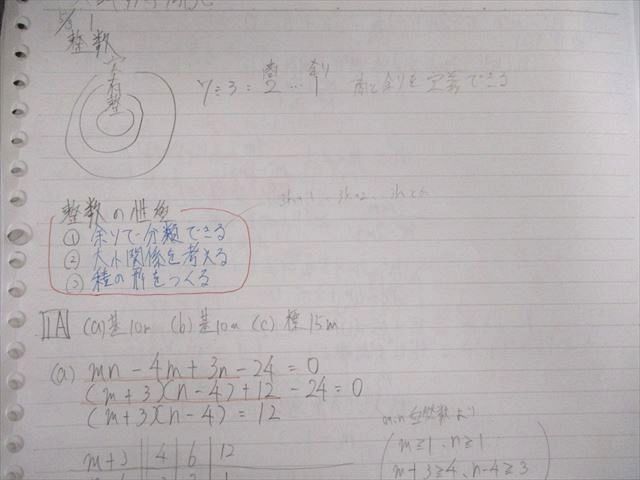 整数
実
有
整
商 余り
7÷3=2…1 商と余りを定義できる
整数の性質
① 余りで分類できる
② 大小関係を考える
③ 積の形をつくる
1A (a)基10m (b)基10m (c)標15m
(a) mn-4m+3n-24=0
(m+3)(n-4)+12-24=0
(m+3)(n-4)=12
m,n自然数より
m≧1、n≧1
m+3≧4、n-4≧3
m+3 4 6 12